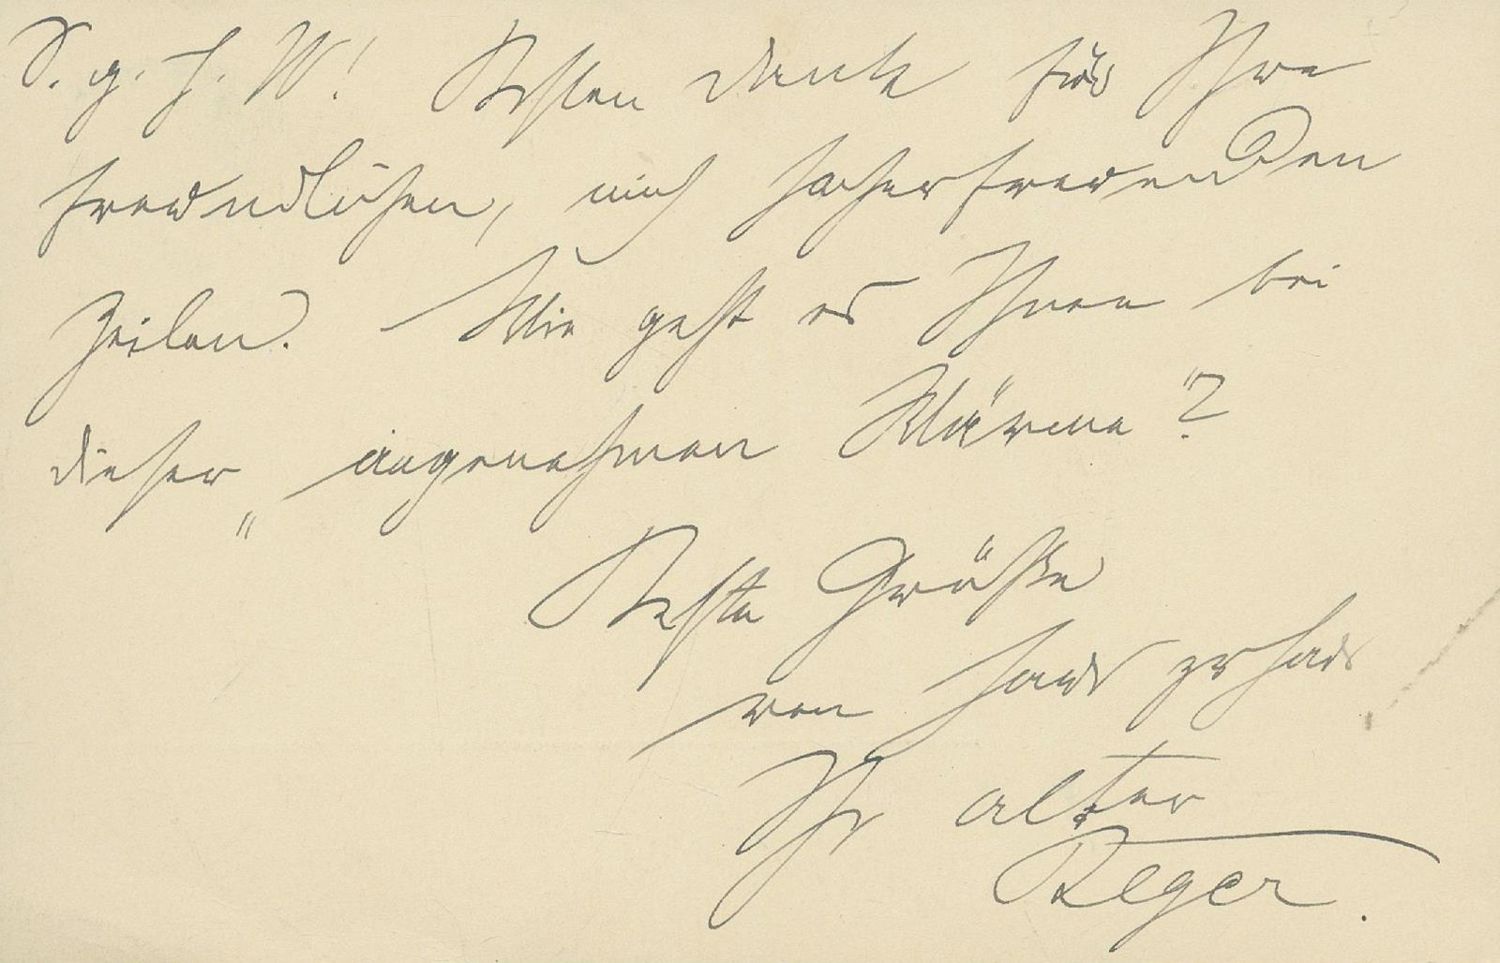 S. g. H. W! Besten Dank für Ihre
freundlichen, mich hocherfreuenden
Zeilen. Wie geht es Ihnen bei
dieser „angenehmen Wärme"?
Beste Grüße
von Haus zu Haus
Ihr alter
Reger.